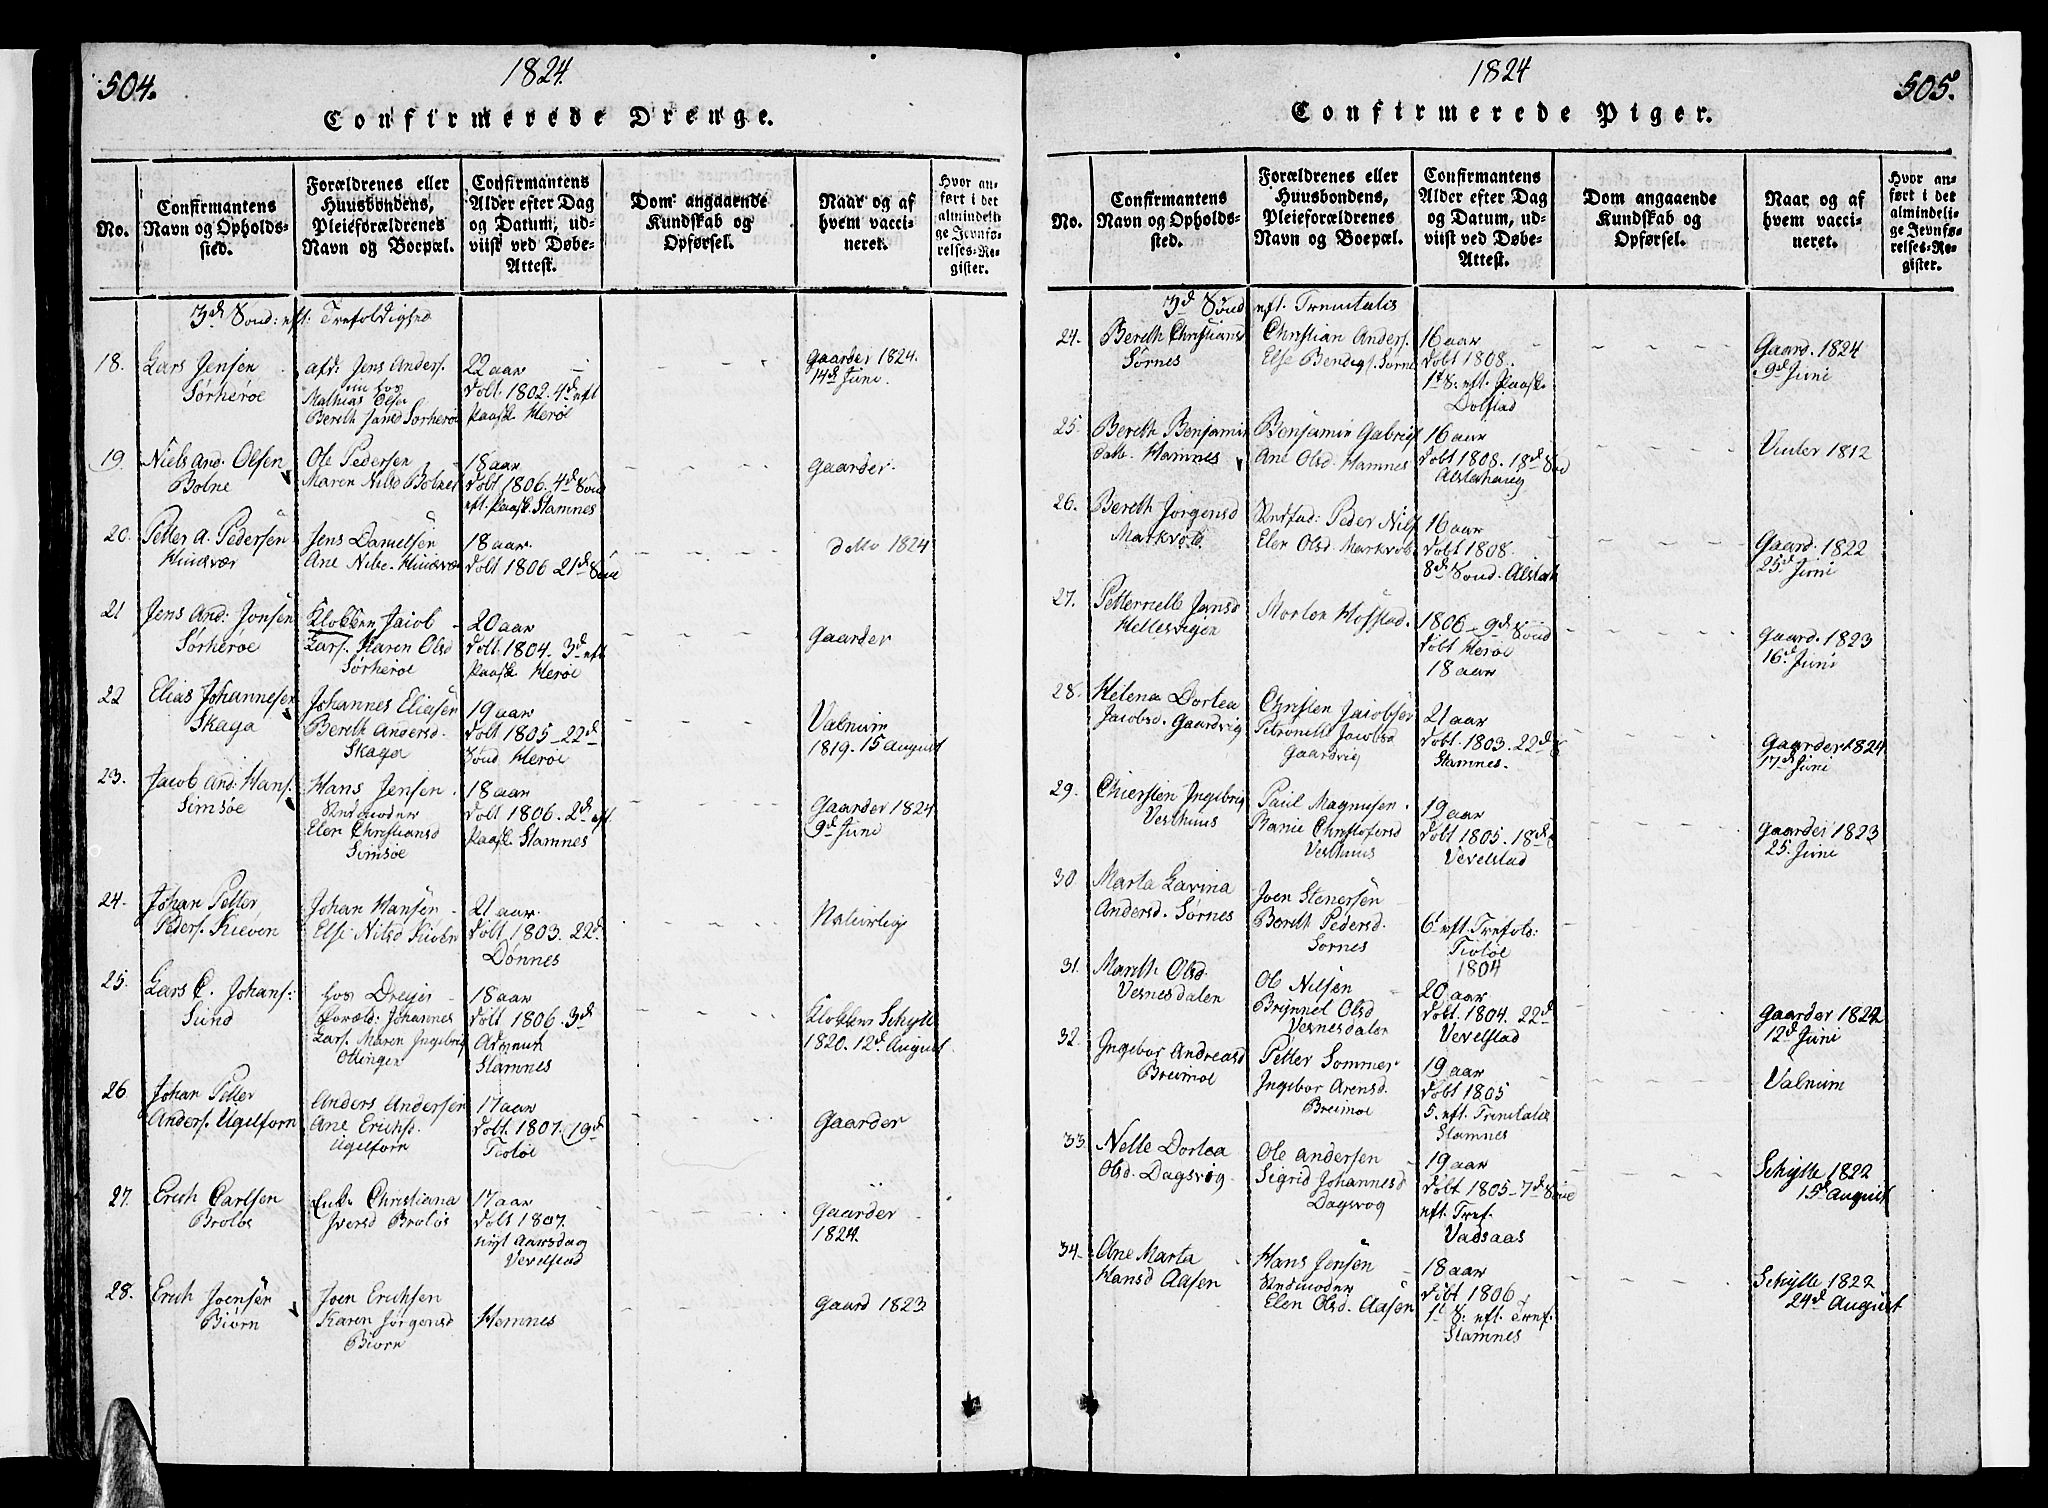 504.
1824.
Confirmerede Drenge.
No.
Confirmantens
Navn og Opholds-
sted.
Forældrenes eller
Huusbondens,
Pleieforældrenes
Navn og Boepæl.
Confirmantens
Alder efter Dag
og Datum, ud-
viist ved Døbe-
Attest.
Dom angaaende
Kundskab og
Opførsel.
Naar og af
hvem vacci-
neret.
Hvor an-
ført i det
almindeli-
ge Jevnfø-
relses-Re-
gister.
3d Sønd: eft: Trefoldighed
18.
Lars Jensen
Sørherøe
afd: Jens Anders.
nu hos
Mathias Else
Bereth Jansd Sørherøe
22 aar
døbt. 1802. 4d eft
Paask Herøe
Gaarder 1824.
14d Juni
19.
Niels And: Olsen
Bolne
Ole Pedersen
Maren Nilsd Bolnes
18 aar
døbt 1806. 4d Sønd
eft. Paask. Stamnes
Gaarder.
20.
Petter A. Pedersen
Hindvær
Jens Danielsen
Ane Nilse. Hindvær
18 aar.
døbt 1806 21d Sønd
ditto 1824
21
Jens And: Jonsen
Sørherøe
Klokken Jacob
Lars. Karen Olsd
Sørherøe
20 aar
døbt. 1804. 3d eft
Paask Herøe
Gaarder
22
Elias Johannesen
Skaga
Johannes Eliesen
Bereth Andersd.
Skaga
19 aar
døbt 1805 - 22d
Sønd Herøe
Valnum
1819. 15 August
23.
Jacob And: Hans.
Simsøe
Hans Jensen.
Stedmoder
Elen Christiansd
Simsøe
18 aar
døbt 1806. 2d eft
Paask. Stamnes
Gaarder 1824
9d Juni
24.
Johan Petter
Peders. Kieven
Johan Hansen
Else Nilsd Kieven
21 aar.
døbt 1803. 22d
Dønnes
Naturlig
25.
Lars C. Johans:
Sund
hos Dreyer
Foræld: Johannes
Lars. Maren Ingebrig
Ottinger
18 aar
døbt 1806. 3d
Stamnes
Klokken Schytte
1820. 12d August
26.
Johan Petter
Anders. Ugelforn
Anders Andersen
Ane Erichs.
Ugelforn
17 aar
døbt. 1807. 19d
Tiøtøe
Gaarder
27.
Erich Carlsen
Broløs
Enke Christiana
Iversd Broløs
17 aar
døbt 1807.
nyt Aarsdag
Vevelstad
Gaarder
1824.
28.
Erich Joensen
Biørn
Joen Erichsen
Karen Jørgensd
Biørn
Hemnes
Gaard 1823
505.
1824
Confirmerede Piger.
No.
Confirmantens
Navn og Opholds-
sted.
Forældrenes eller
Huusbondens,
Pleieforældrenes
Navn og Boepæl.
Confirmantens
Alder efter Dag
og Datum, ud-
viist ved Døbe-
Attest.
Dom angaaende
Kundskab og
Opførsel.
Naar og af
hvem vacci-
neret.
Hvor an-
ført i det
almindeli-
ge Jevnfø-
relses-Re-
gister.
3d Sønd eft. Trenitatis
24.
Bereth Christiansd
Sørnes
Christian Anders.
Else Bendigs. Sørnes
16 aar
døbt 1808.
1t S. eft. Paask.
Dolstad
Gaard. 1824
9d Juni
25.
Bereth Benjamin
Hamnes
Benjamin Gabriels
Ane Olsd. Hamnes
16 aar
døbt 1808. 18d Sønd
Alstahaug
Vinter 1812
26.
Bereth Jørgensd
Markvold
Stedfad: Peder Nils
Elen Olsd Markvold
16 aar
døbt 1808.
8d Sønd. Alstah
Gaard. 1822
25d Juni
27.
Petternelle Jansd
Hellesvigen
Morten Hofstad.
1806 - 9d Sønd
døbt Herøe
18 aar
Gaard. 1823
16d Juni
28.
Helena Dortea
Jacobsd. Gaardvig
Christen Jacobsen
Petronelle Jacobsd
Gaardvig
21 aar
døbt. 1803. 22d S
Stamnes.
Gaarder 1824
17d Juni
29.
Chiersten Ingebrig
Vesthuus
Paul Magnusen.
Marie Christofersd
Vesthuus
19 aar
døbt 1805. 18d S
Vevelstad
Gaarder 1823
25. Juni
30.
Marta Lavina
Andersd. Sørnes
Joen Stenersen
Bereth Pedersd.
Sørnes
6t eft. Trefold:
Tiøtøe
1804
31.
Mareth Olsd.
Vesnesdalen
Ole Nilsen
Brynnel Olsd
Vesnesdalen
20 aar
døbt. 1804. 22d
Vevelstad
Gaarder 1822
12d Juni
32.
Ingebor Andreasd
Breimoe
Petter Sommer
Ingebor Arensd.
Breimoe
19 aar
døbt 1805
5. eft. Trenitatis
Stamnes
Valnum
33.
Nelle Dortea
Olsd. Dagsvog
Ole Andersen
Sigrid Johannesd
Dagsvog
19 aar
døbt 1805 - 7d Sønd
eft. Tref.
Vadsaas
Schytte 1822
15d August
34.
Ane Marta
Hansd Aasen
Hans Jensen
Stedmoder
Elen Olsd. Aasen
18 aar
døbt 1806
1t S. eft. Tref.
Stamnes
Schytte 1822
24d August